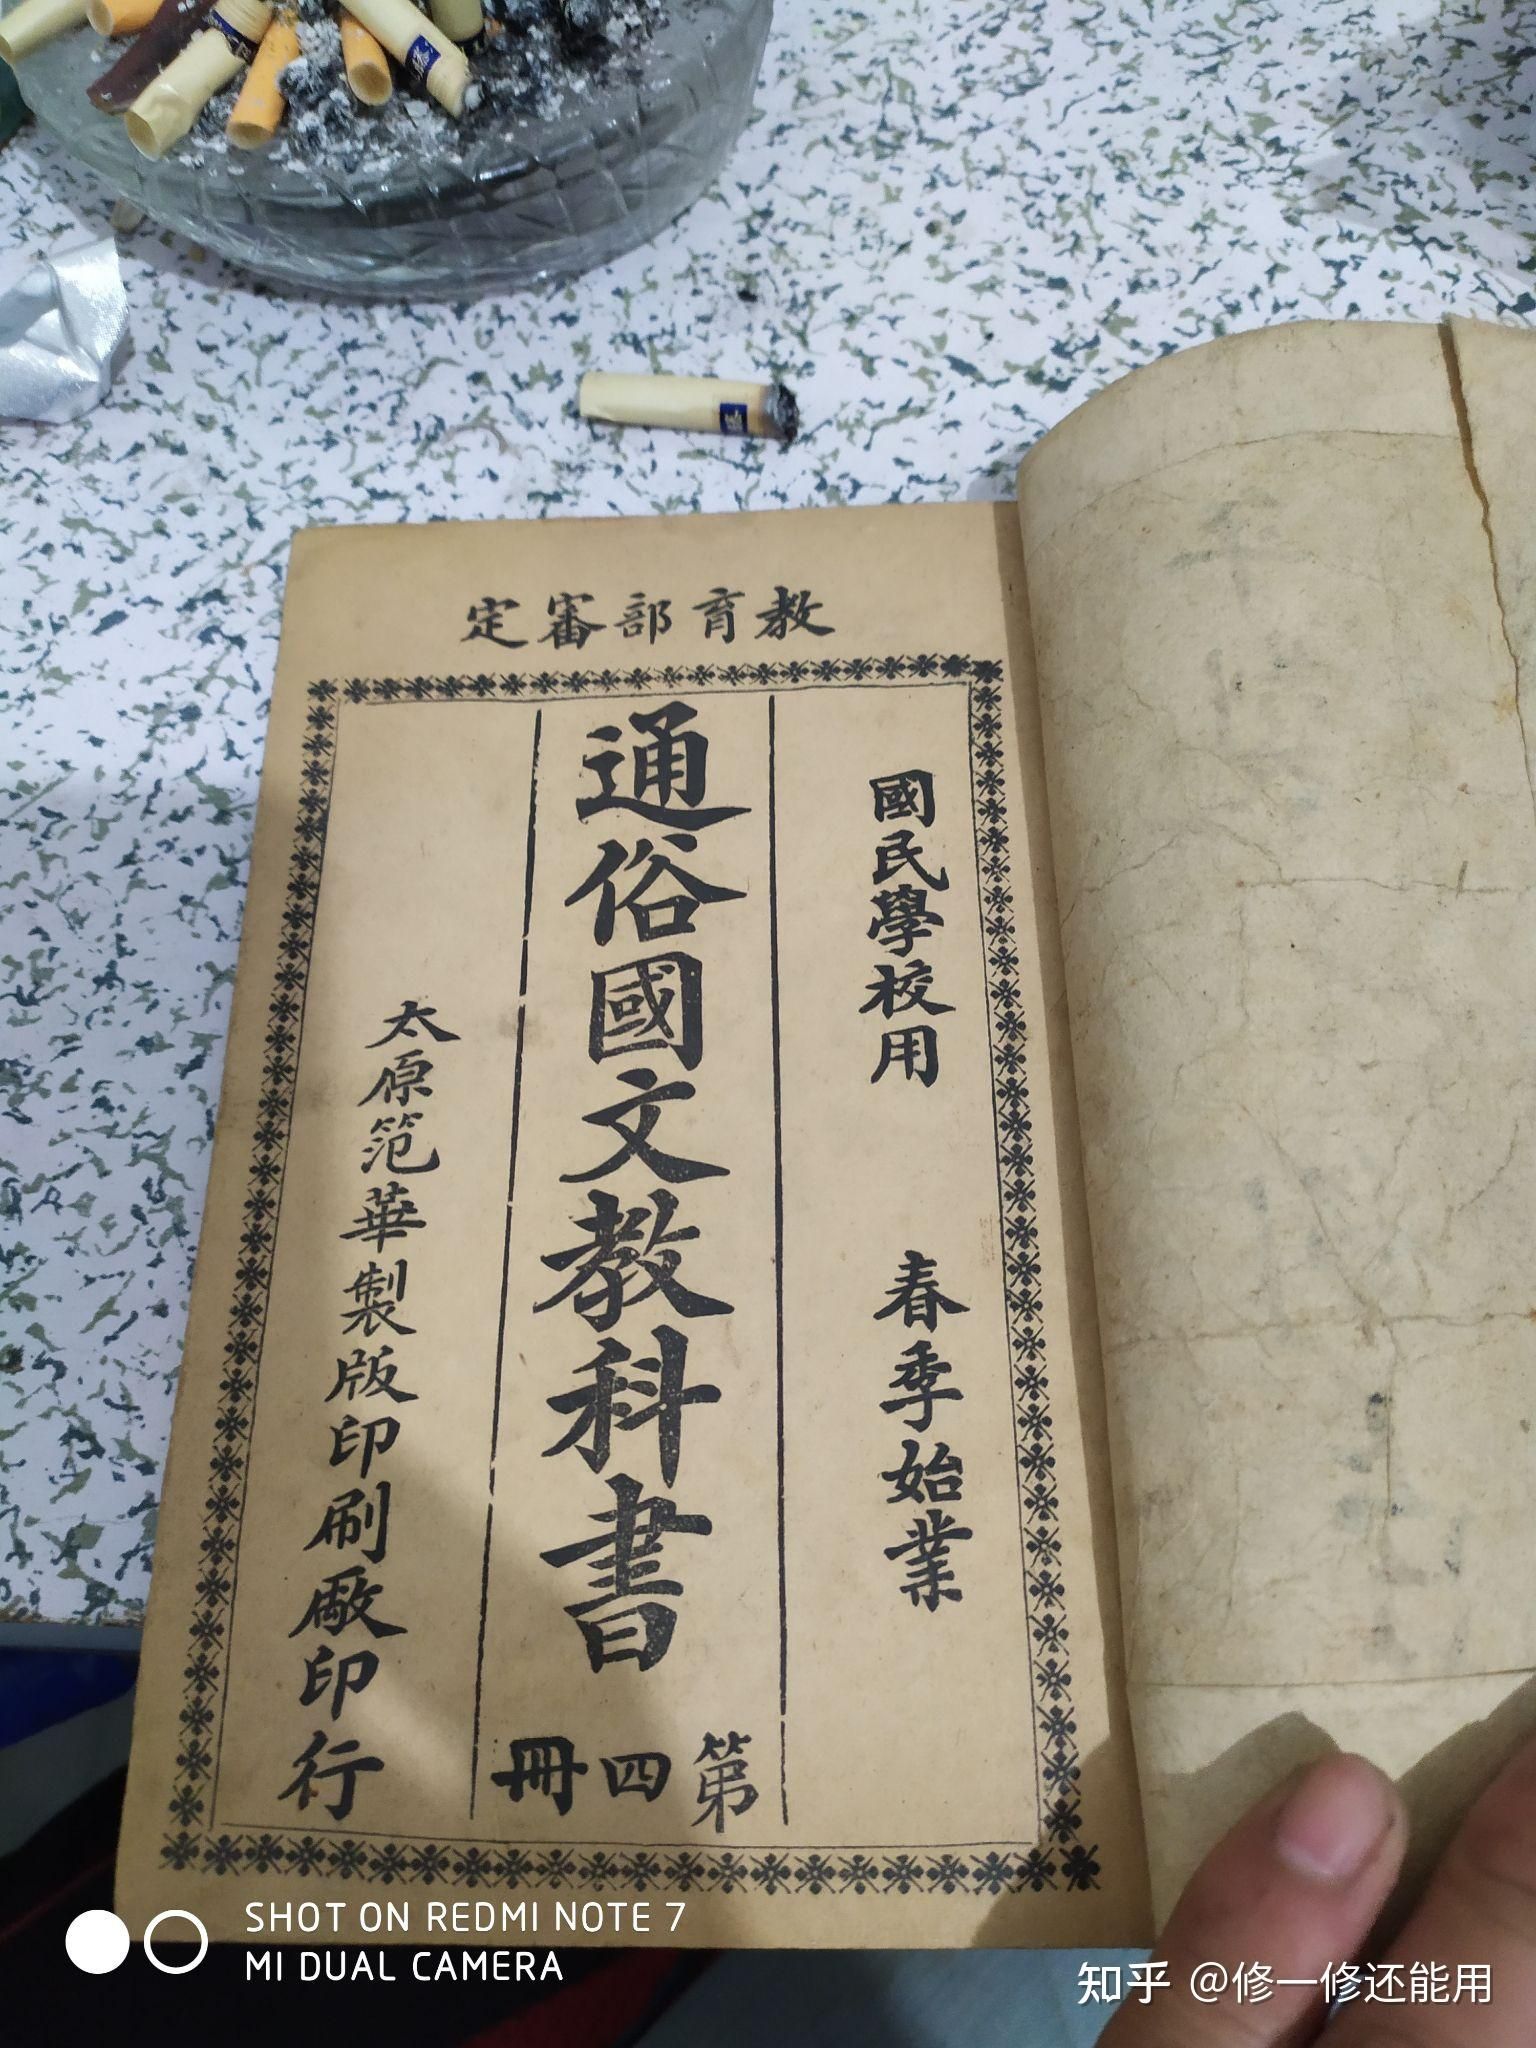 教育部審定
國民學校用 春季始業
通俗國文教科書
第四冊
太原范華製版印刷廠印行
SHOT ON REDMI NOTE 7
MI DUAL CAMERA
知乎 @修一修还能用